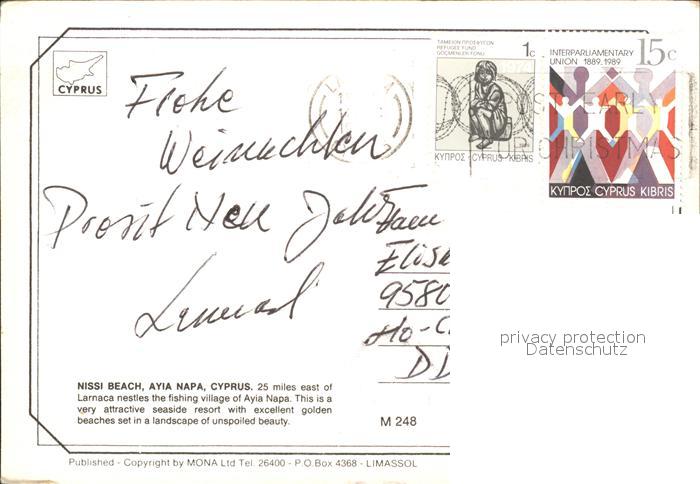 CYPRUS
ΤΑΜΕΙΟΝ ΠΡΟΣΦΥΓΩΝ
REFUGEE FUND
GÖÇMENLER FONU
1c
1974
ΚΥΠΡΟΣ - CYPRUS - KIBRIS
INTERPARLIAMENTARY
UNION 1889.1989
15c
ΚΥΠΡΟΣ CYPRUS KIBRIS
POST EARLY
CHRISTMAS
Frohe
Weinachten
Prosit Neu Jahr
Fam
9580
DD
privacy protection
Datenschutz
NISSI BEACH, AYIA NAPA, CYPRUS. 25 miles east of
Larnaca nestles the fishing village of Ayia Napa. This is a
very attractive seaside resort with excellent golden
beaches set in a landscape of unspoiled beauty.
M 248
Published - Copyright by MONA Ltd Tel. 26400 - P.O.Box 4368 - LIMASSOL